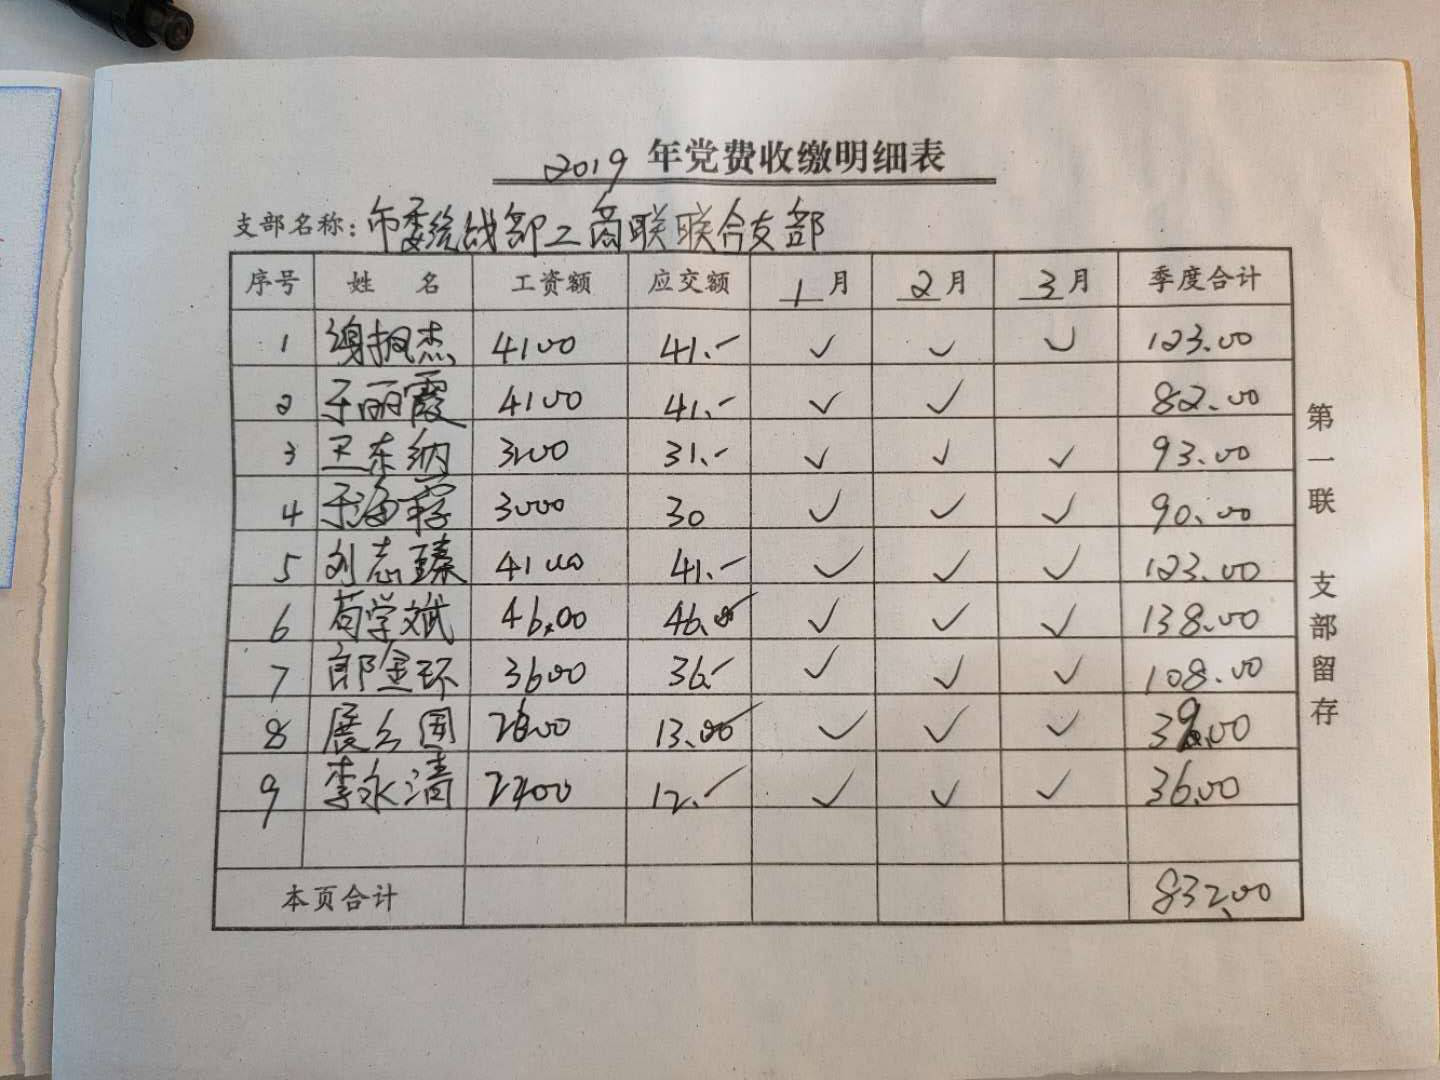 2019 年党费收缴明细表
支部名称: 市委统战部工商联联合支部
序号 姓 名 工资额 应交额 1 月 2 月 3 月 季度合计
1 谢振杰 4100 41.- ✓ ✓ ✓ 123.00
2 于丽霞 4100 41.- ✓ ✓ 82.00
3 卫东纳 3100 31.- ✓ ✓ ✓ 93.00
4 于海霞 3000 30 ✓ ✓ ✓ 90.00
5 刘志臻 4100 41.- ✓ ✓ ✓ 123.00
6 苟学斌 4600 46.00 ✓ ✓ ✓ 138.00
7 郎金环 3600 36.- ✓ ✓ ✓ 108.00
8 展公国 2600 13.00 ✓ ✓ ✓ 39.00
9 李永清 2400 12.- ✓ ✓ ✓ 36.00
本页合计 832.00
第一联 支部留存